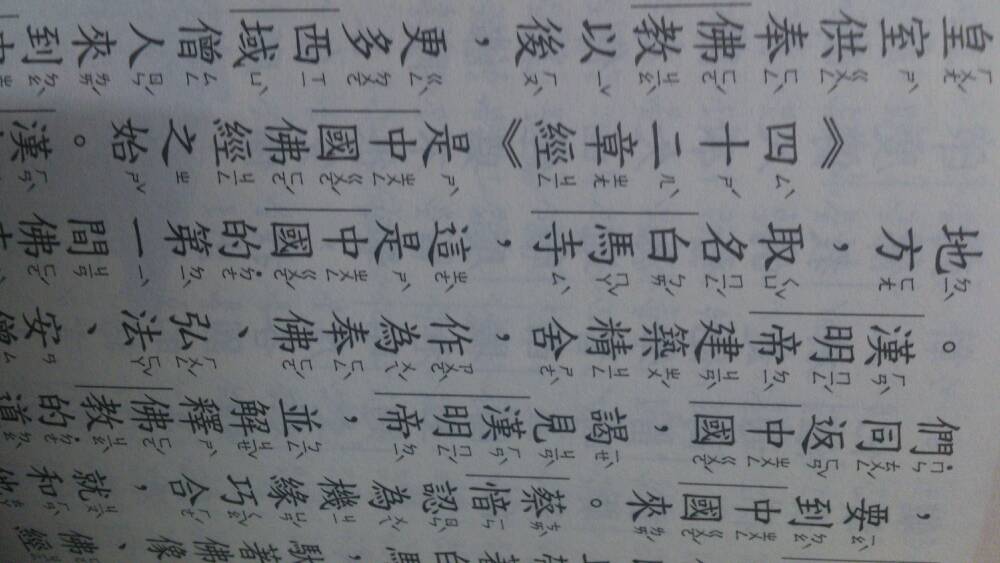 白馬，馱著佛像、佛經
，要到中國來。蔡愔認為機緣巧合，就和他
們同返中國，謁見漢明帝，並解釋佛教的道
。漢明帝建築精舍，作為奉佛、弘法、安僧
地方，取名白馬寺，這是中國的第一間佛
《四十二章經》是中國佛經之始。漢
皇室供奉佛教以後，更多西域僧人來到中